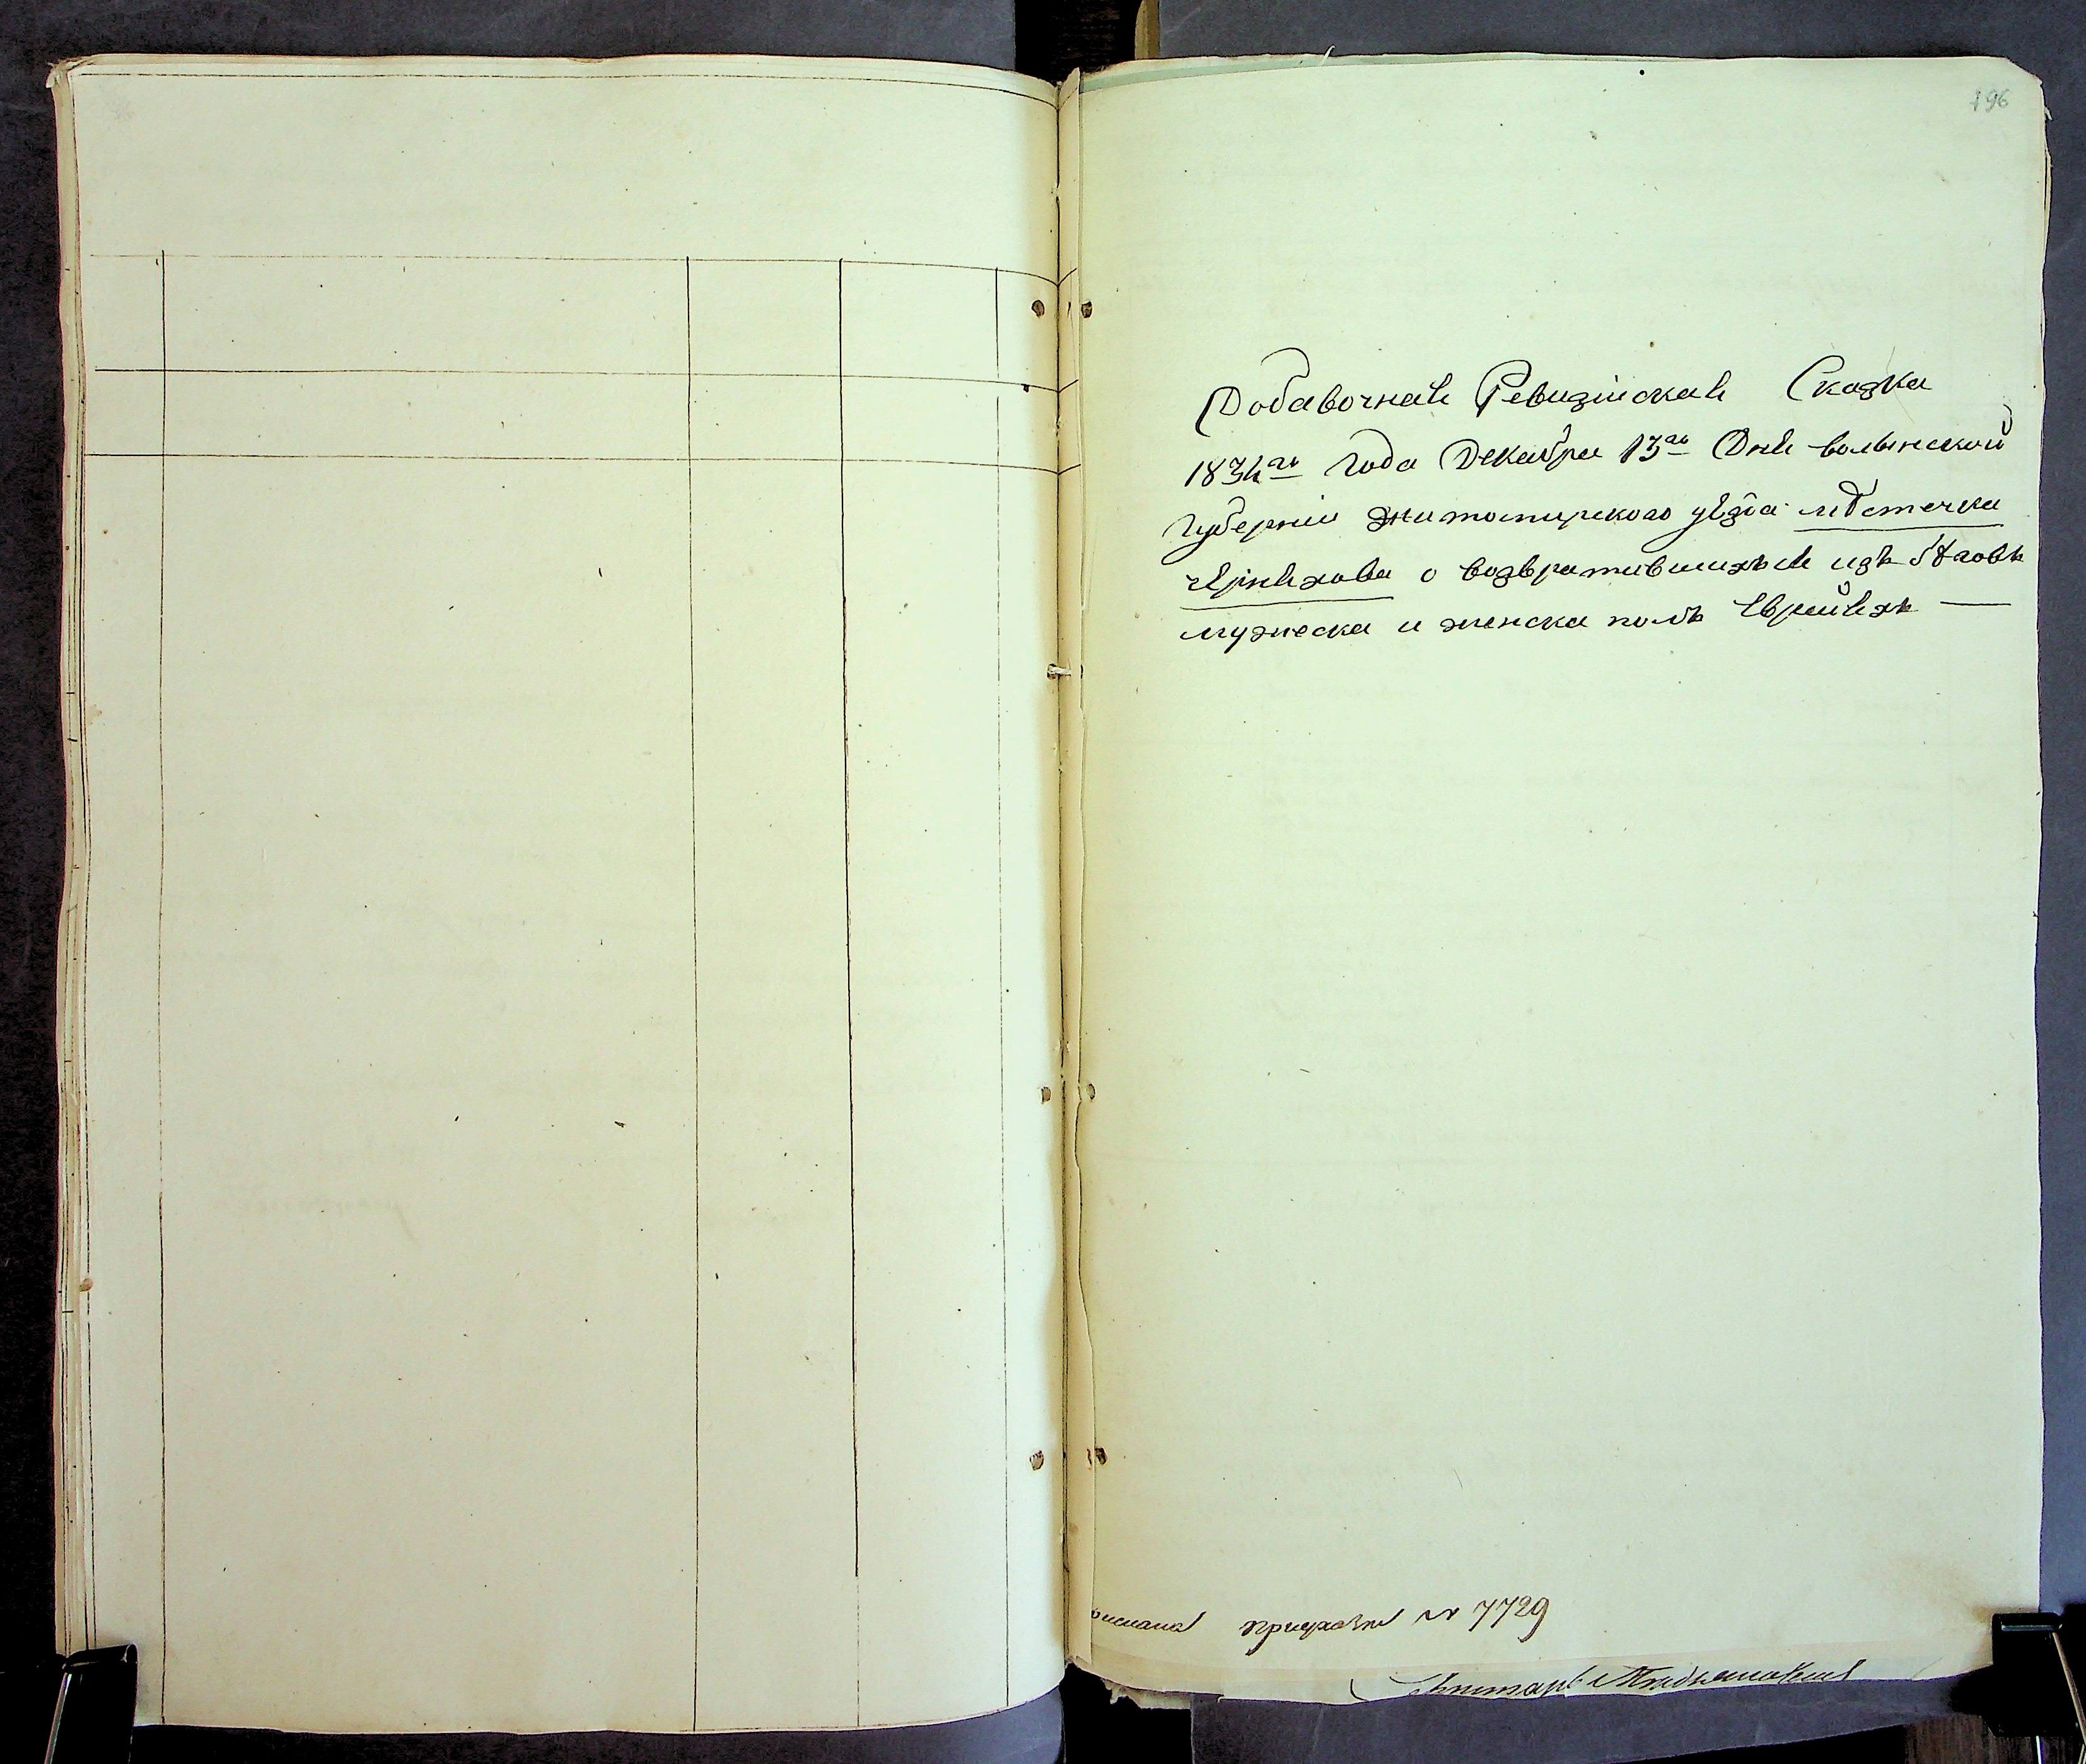 196
Добавочная Ревизіская Сказка
1834го Года Декабра 13го Дня волынской
Губерніи житомирского уѣзда мѣстечка
черняхова о возвратившихся изъ бѣговъ
мужеска и женска полъ Евреяхъ —
№ 7729